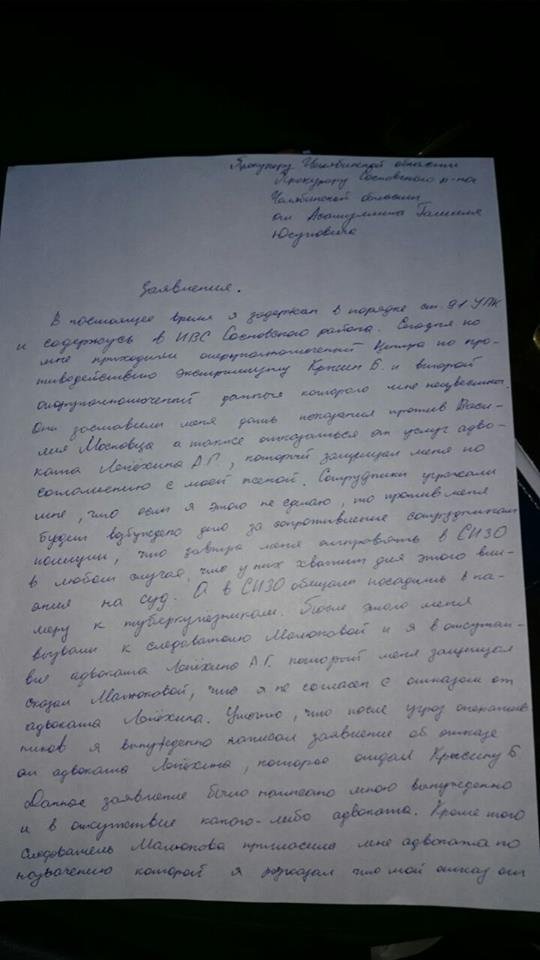 Прокурору Челябинской области
Прокурору Сосновского р-на
Челябинской области
от Асатуллина
Юсуповича
Заявление.
В настоящее время я задержан в порядке ст. 91 УПК
и содержусь в ИВС Сосновского района. Сегодня ко
мне приходили оперуполномоченный Центра по про-
тиводействию экстремизму Крысин Б. и второй
оперуполномоченный данные которого мне неизвестны.
Они заставили меня дать показания против Васи-
лия Московца а также отказаться от услуг адво-
ката Лепёхина А.Г., который защищал меня по
соглашению с моей женой. Сотрудники угрожали
мне, что если я этого не сделаю, то против меня
будет возбуждено дело за сопротивление сотрудникам
полиции, что завтра меня отправять в СИЗО
в любом случае, что у них хватит для этого вли-
яния на суд. А в СИЗО обещали посадить в ка-
меру к туберкулёзникам. После этого меня
вызвали к следователю Малюковой и я в отсутст-
вие адвоката Лепёхина А.Г. который меня защищал
сказал Малюковой, что я не согласен с отказом от
адвоката Лепёхина. Уточню, что после угроз оператив
ников я вынужденно написал заявление об отказе
от адвоката Лепёхина, которое отдал Крысину Б.
Данное заявление было написано мною вынужденно
и в отсутствие какого-либо адвоката. Кроме того
следователь Малюкова пригласила мне адвоката по
назначению которой я сказал что мой отказ от